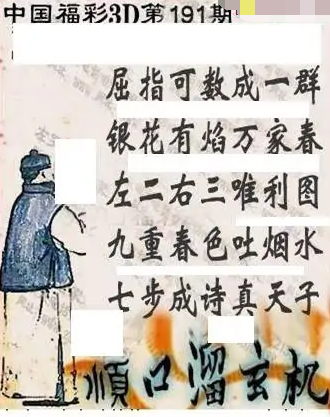 中国福彩3D第191期
屈指可数成一群
银花有焰万家春
左二右三唯利图
九重春色吐烟水
七步成诗真天子
顺口溜玄机